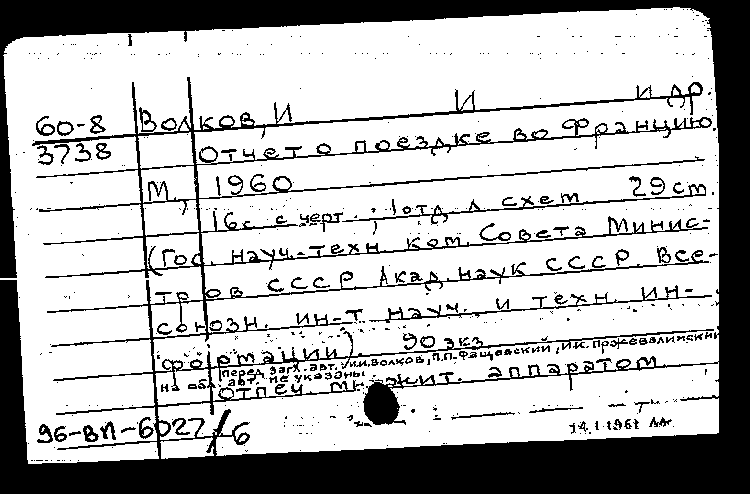 60-8 Волков, И И и др.
3738 Отчет о поездке во Францию.
М., 1960
16 с. с черт.; 1 отд. л. схем. 29 см.
(Гос. науч.-техн. ком. Совета Минис-
тров СССР. Акад. наук СССР. Все-
союзн. ин-т науч. и техн. ин-
формации). 90 экз.
Перед загл. авт.: И.И. Волков, П.П. Фащевский, И.К. Пржевалинский
на обл. авт. не указаны
Отпеч. множит. аппаратом
96-ВП-6027/6
14.1.1961